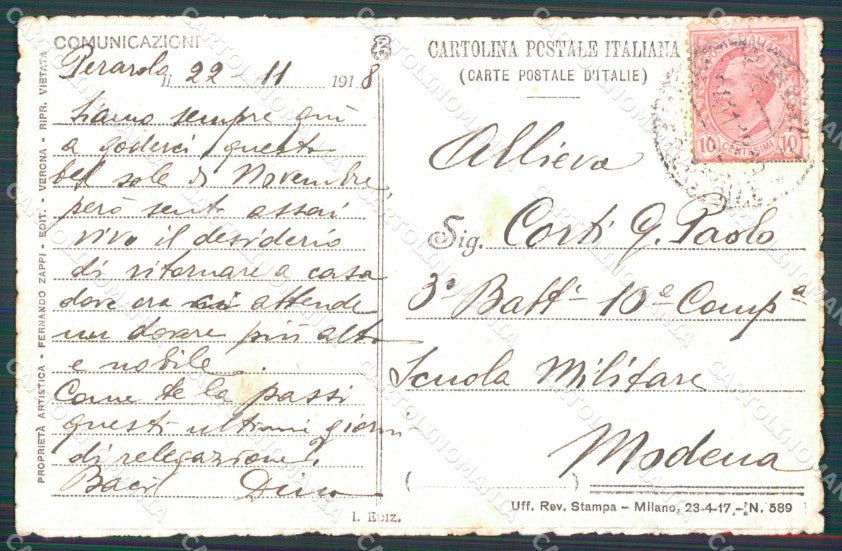 COMUNICAZIONI
Perarolo li 22-11 1918
Siamo sempre qui
a goderci questo
bel sole di Novembre,
però sento assai
vivo il desiderio
di ritornare a casa
dove ora ci attende
un dovere più alto
e nobile.
Come te la passi
questi ultimi giorni
di relegazione?
Baci Dino
PROPRIETÀ ARTISTICA - FERNANDO ZAPPI - EDIT. - VERONA - RIPR. VIETATA
I. EDIZ.
CARTOLINA POSTALE ITALIANA
(CARTE POSTALE D'ITALIE)
10 CENTESIMI 10
Allievo
Sig. Corti G. Paolo
3° Batt. 10ª Compª
Scuola Militare
Modena
Uff. Rev. Stampa - Milano, 23-4-17, - N. 589
CARTOLINOMANIA